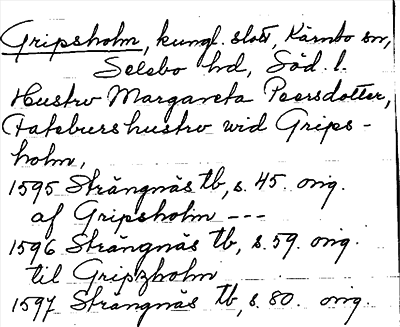 Gripsholm, kungl. slott, Kärnbo sn,
Selebo hd, Söd. l.
Hustrv Margareta Peersdotter,
Fatebvrshustrv wid Grips-
holm,
1595 Strängnäs tb, s. 45. orig.
af Gripsholm ---
1596 Strängnäs tb, s. 59. orig.
til Gripzholm
1597 Strängnäs tb, s. 80. orig.